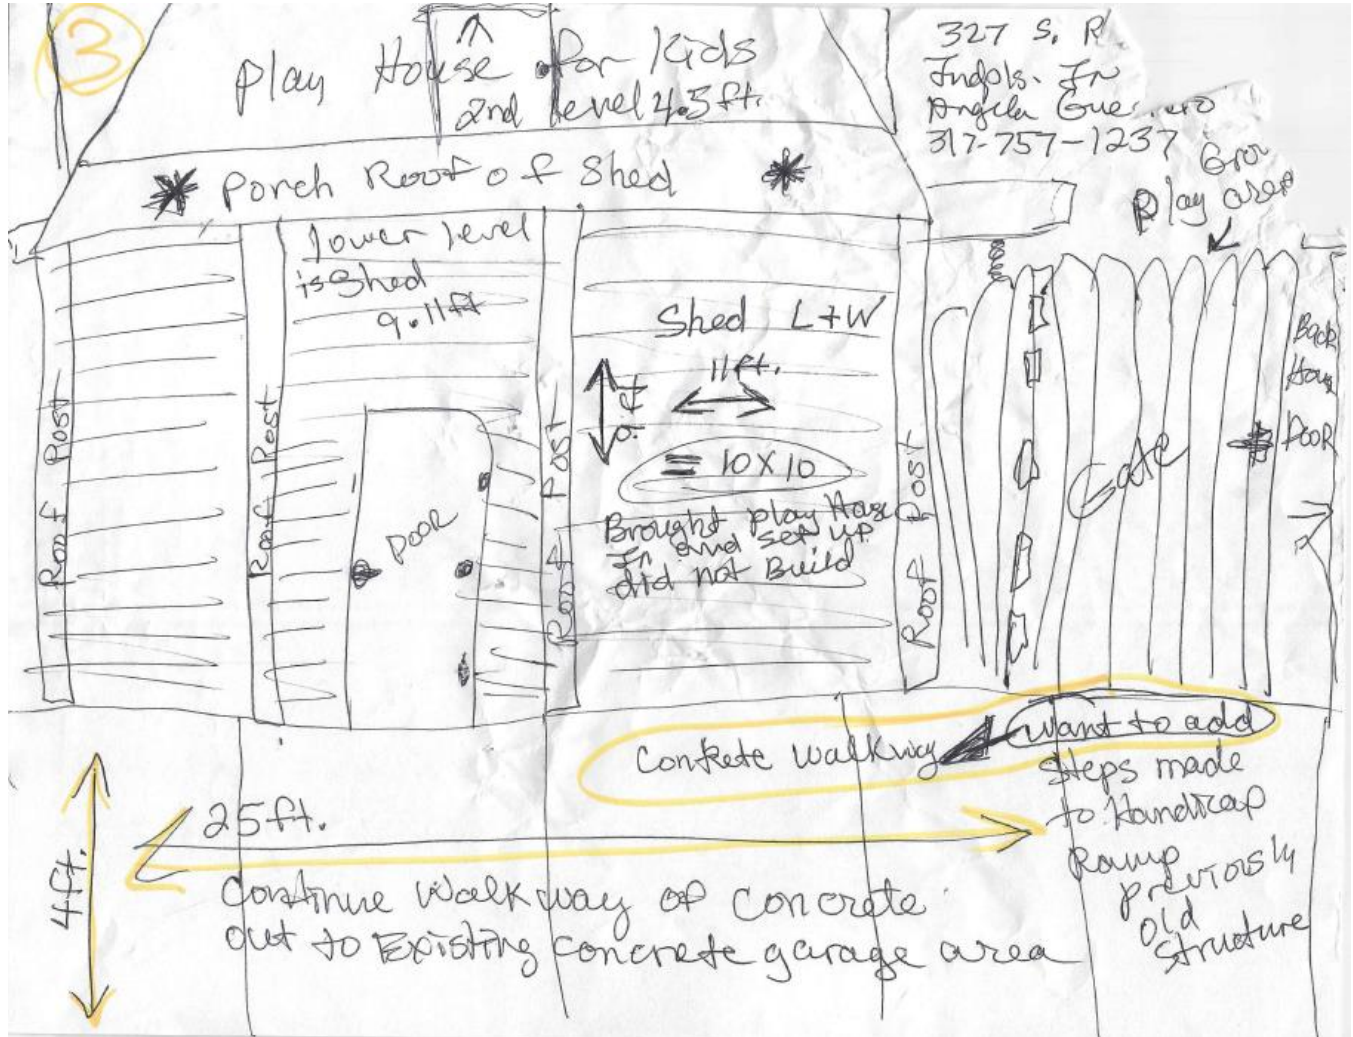 3
Play House for Kids
2nd level 4.5 ft.
327 S. R
Indpls. In
Angela Gue
317-757-1237
Play area
Porch Roof of Shed
lower level
is shed
9.11 ft
Shed L+W
11 ft.
= 10 X 10
Brought play House
In and set up
did not Build
Roof Post
Roof Post
Roof Post
Roof Post
DOOR
Gate
Back
House
DOOR
Conkrete walkway
want to add
Steps made
to Handicap
Ramp
previously
old
Structure
25 ft.
4 ft.
Continue Walkway of Concrete
out to Existing concrete garage area